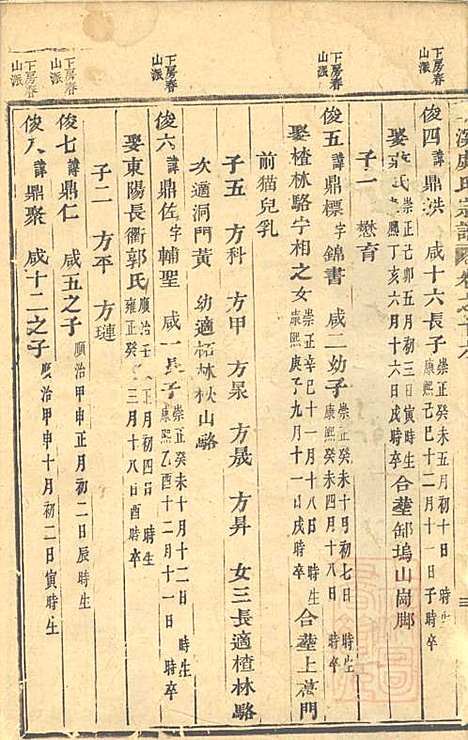 溪盧氏宗譜
下房春山派
俊四 諱鼎洪 咸十六長子 崇正癸未五月初十日 時生 康熙己巳十二月十一日子時卒
娶 氏 崇正己卯五月初三日寅時生 丁亥六月十六日戌時卒 合塟郜塢山崗脚
子一 懋育
下房春山派
俊五 諱鼎標字錦書 咸二幼子 崇正癸未十月初七日 時生 康熙癸未四月十八日 時卒
娶楂林駱宁相之女 崇正辛巳十一月十八日 時生 康熙庚子九月十一日戌時卒 合塟上 門
前猫兒乳
子五 方科 方甲 方杲 方晟 方昇 女三長適楂林駱
次適洞門黃 幼適柘林秋山駱
下房春山派
俊六 諱鼎佐字輔聖 咸一長子 崇正癸未十月十二日 時生 康熙乙酉十二月十一日 時卒
娶東陽長衢郭氏 順治壬 月初四 時生 雍正癸 三月十八日酉時卒
子二 方平 方璉
下房春山派
俊七 諱鼎仁 咸五之子 順治甲申正月初二日辰時生
下房春山派
俊八 諱鼎聚 咸十二之子 順治甲申十月初二日寅時生